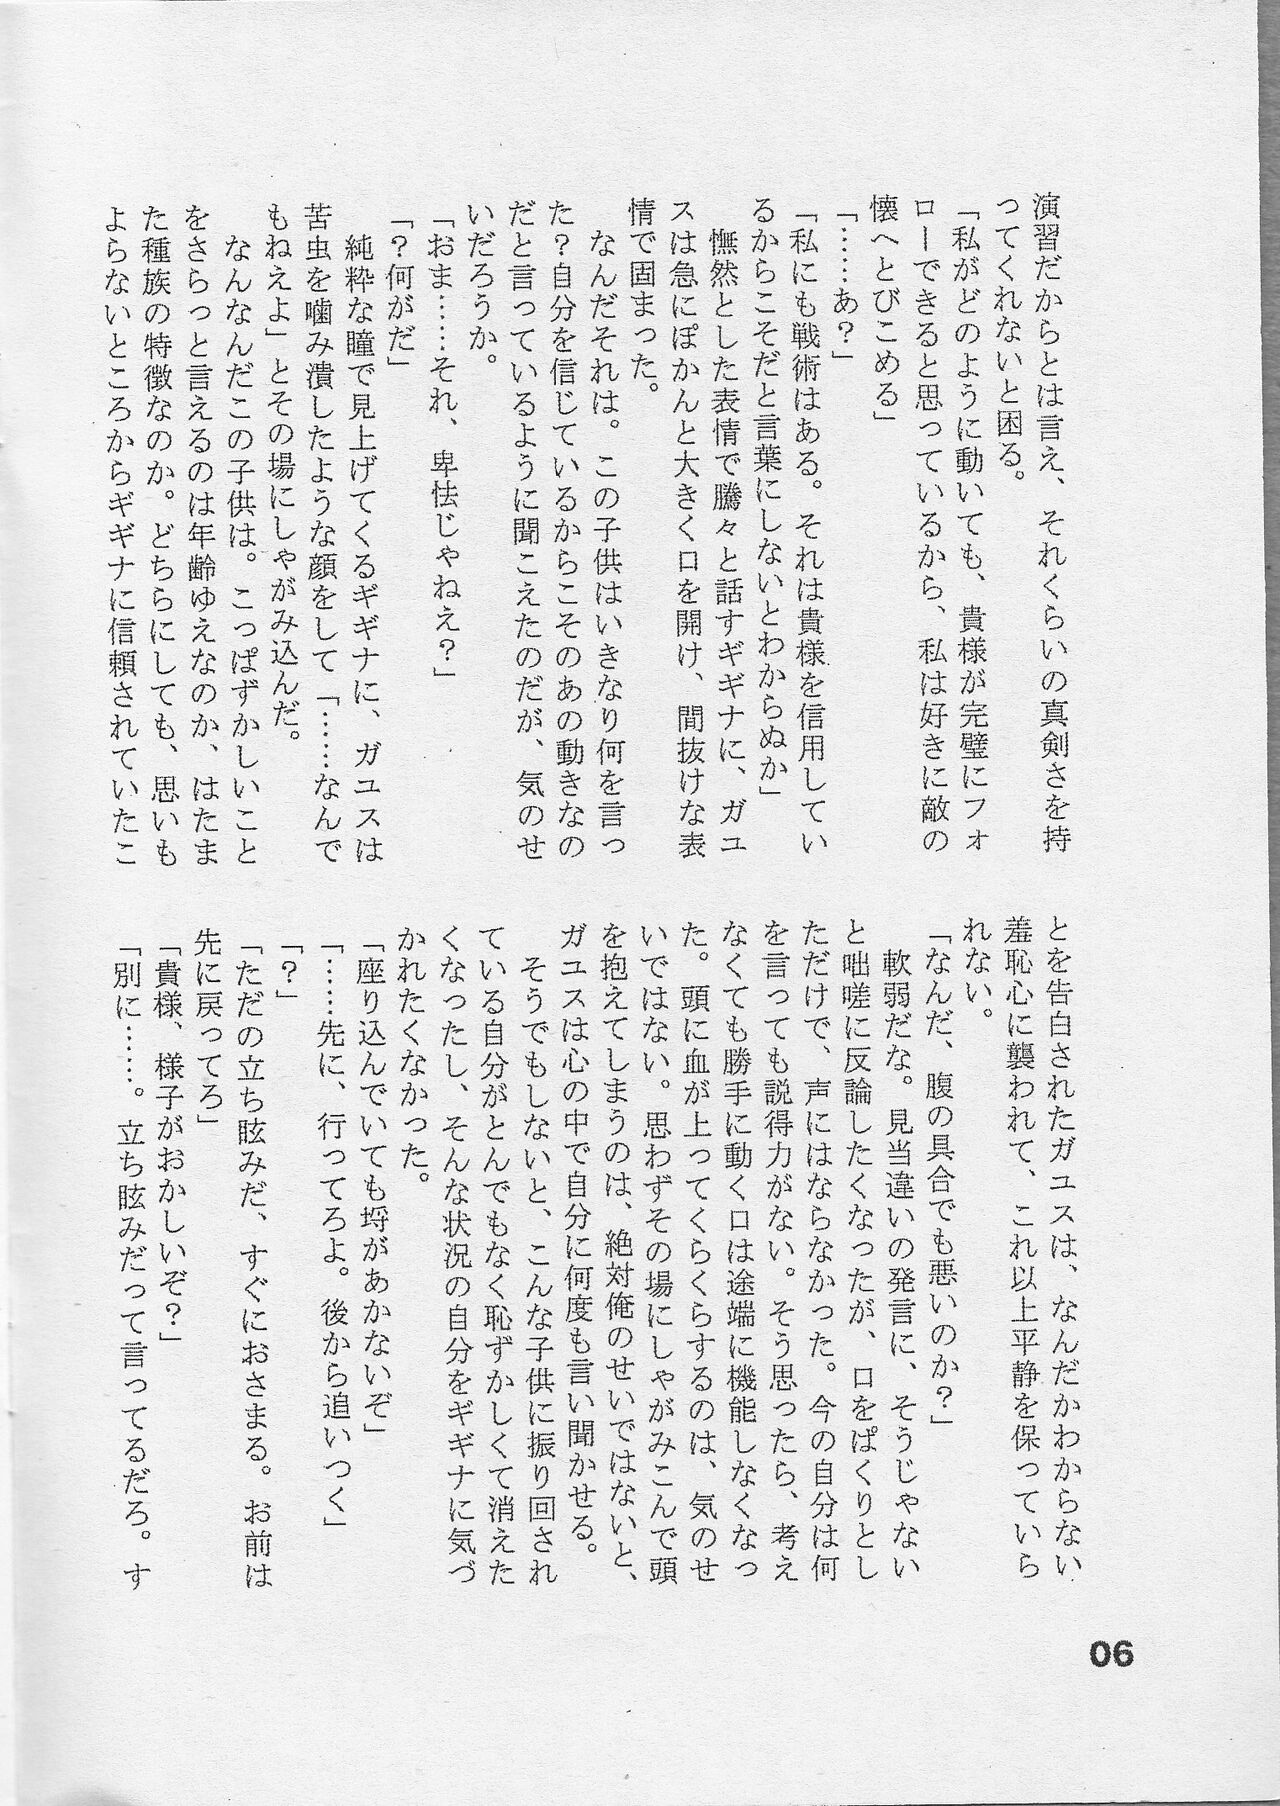 演習だからとは言え、それくらいの真剣さを持
ってくれないと困る。
「私がどのように動いても、貴様が完璧にフォ
ローできると思っているから、私は好きに敵の
懐へとびこめる」
「……あ？」
「私にも戦術はある。それは貴様を信用してい
るからこそだと言葉にしないとわからぬか」
憮然とした表情で騰々と話すギギナに、ガユ
スは急にぽかんと大きく口を開け、間抜けな表
情で固まった。
なんだそれは。この子供はいきなり何を言っ
た？自分を信じているからこそのあの動きなの
だと言っているように聞こえたのだが、気のせ
いだろうか。
「おま……それ、卑怯じゃねえ？」
「？何がだ」
純粋な瞳で見上げてくるギギナに、ガユスは
苦虫を噛み潰したような顔をして「……なんで
もねえよ」とその場にしゃがみ込んだ。
なんなんだこの子供は。こっぱずかしいこと
をさらっと言えるのは年齢ゆえなのか、はたま
た種族の特徴なのか。どちらにしても、思いも
よらないところからギギナに信頼されていたこ
とを告白されたガユスは、なんだかわからない
羞恥心に襲われて、これ以上平静を保っていら
れない。
「なんだ、腹の具合でも悪いのか？」
軟弱だな。見当違いの発言に、そうじゃない
と咄嗟に反論したくなったが、口をぱくりとし
ただけで、声にはならなかった。今の自分は何
を言っても説得力がない。そう思ったら、考え
なくても勝手に動く口は途端に機能しなくなっ
た。頭に血が上ってくらくらするのは、気のせ
いではない。思わずその場にしゃがみこんで頭
を抱えてしまうのは、絶対俺のせいではないと、
ガユスは心の中で自分に何度も言い聞かせる。
そうでもしないと、こんな子供に振り回され
ている自分がとんでもなく恥ずかしくて消えた
くなったし、そんな状況の自分をギギナに気づ
かれたくなかった。
「座り込んでいても埒があかないぞ」
「……先に、行ってろよ。後から追いつく」
「？」
「ただの立ち眩みだ、すぐにおさまる。お前は
先に戻ってろ」
「貴様、様子がおかしいぞ？」
「別に……。立ち眩みだって言ってるだろ。す
06